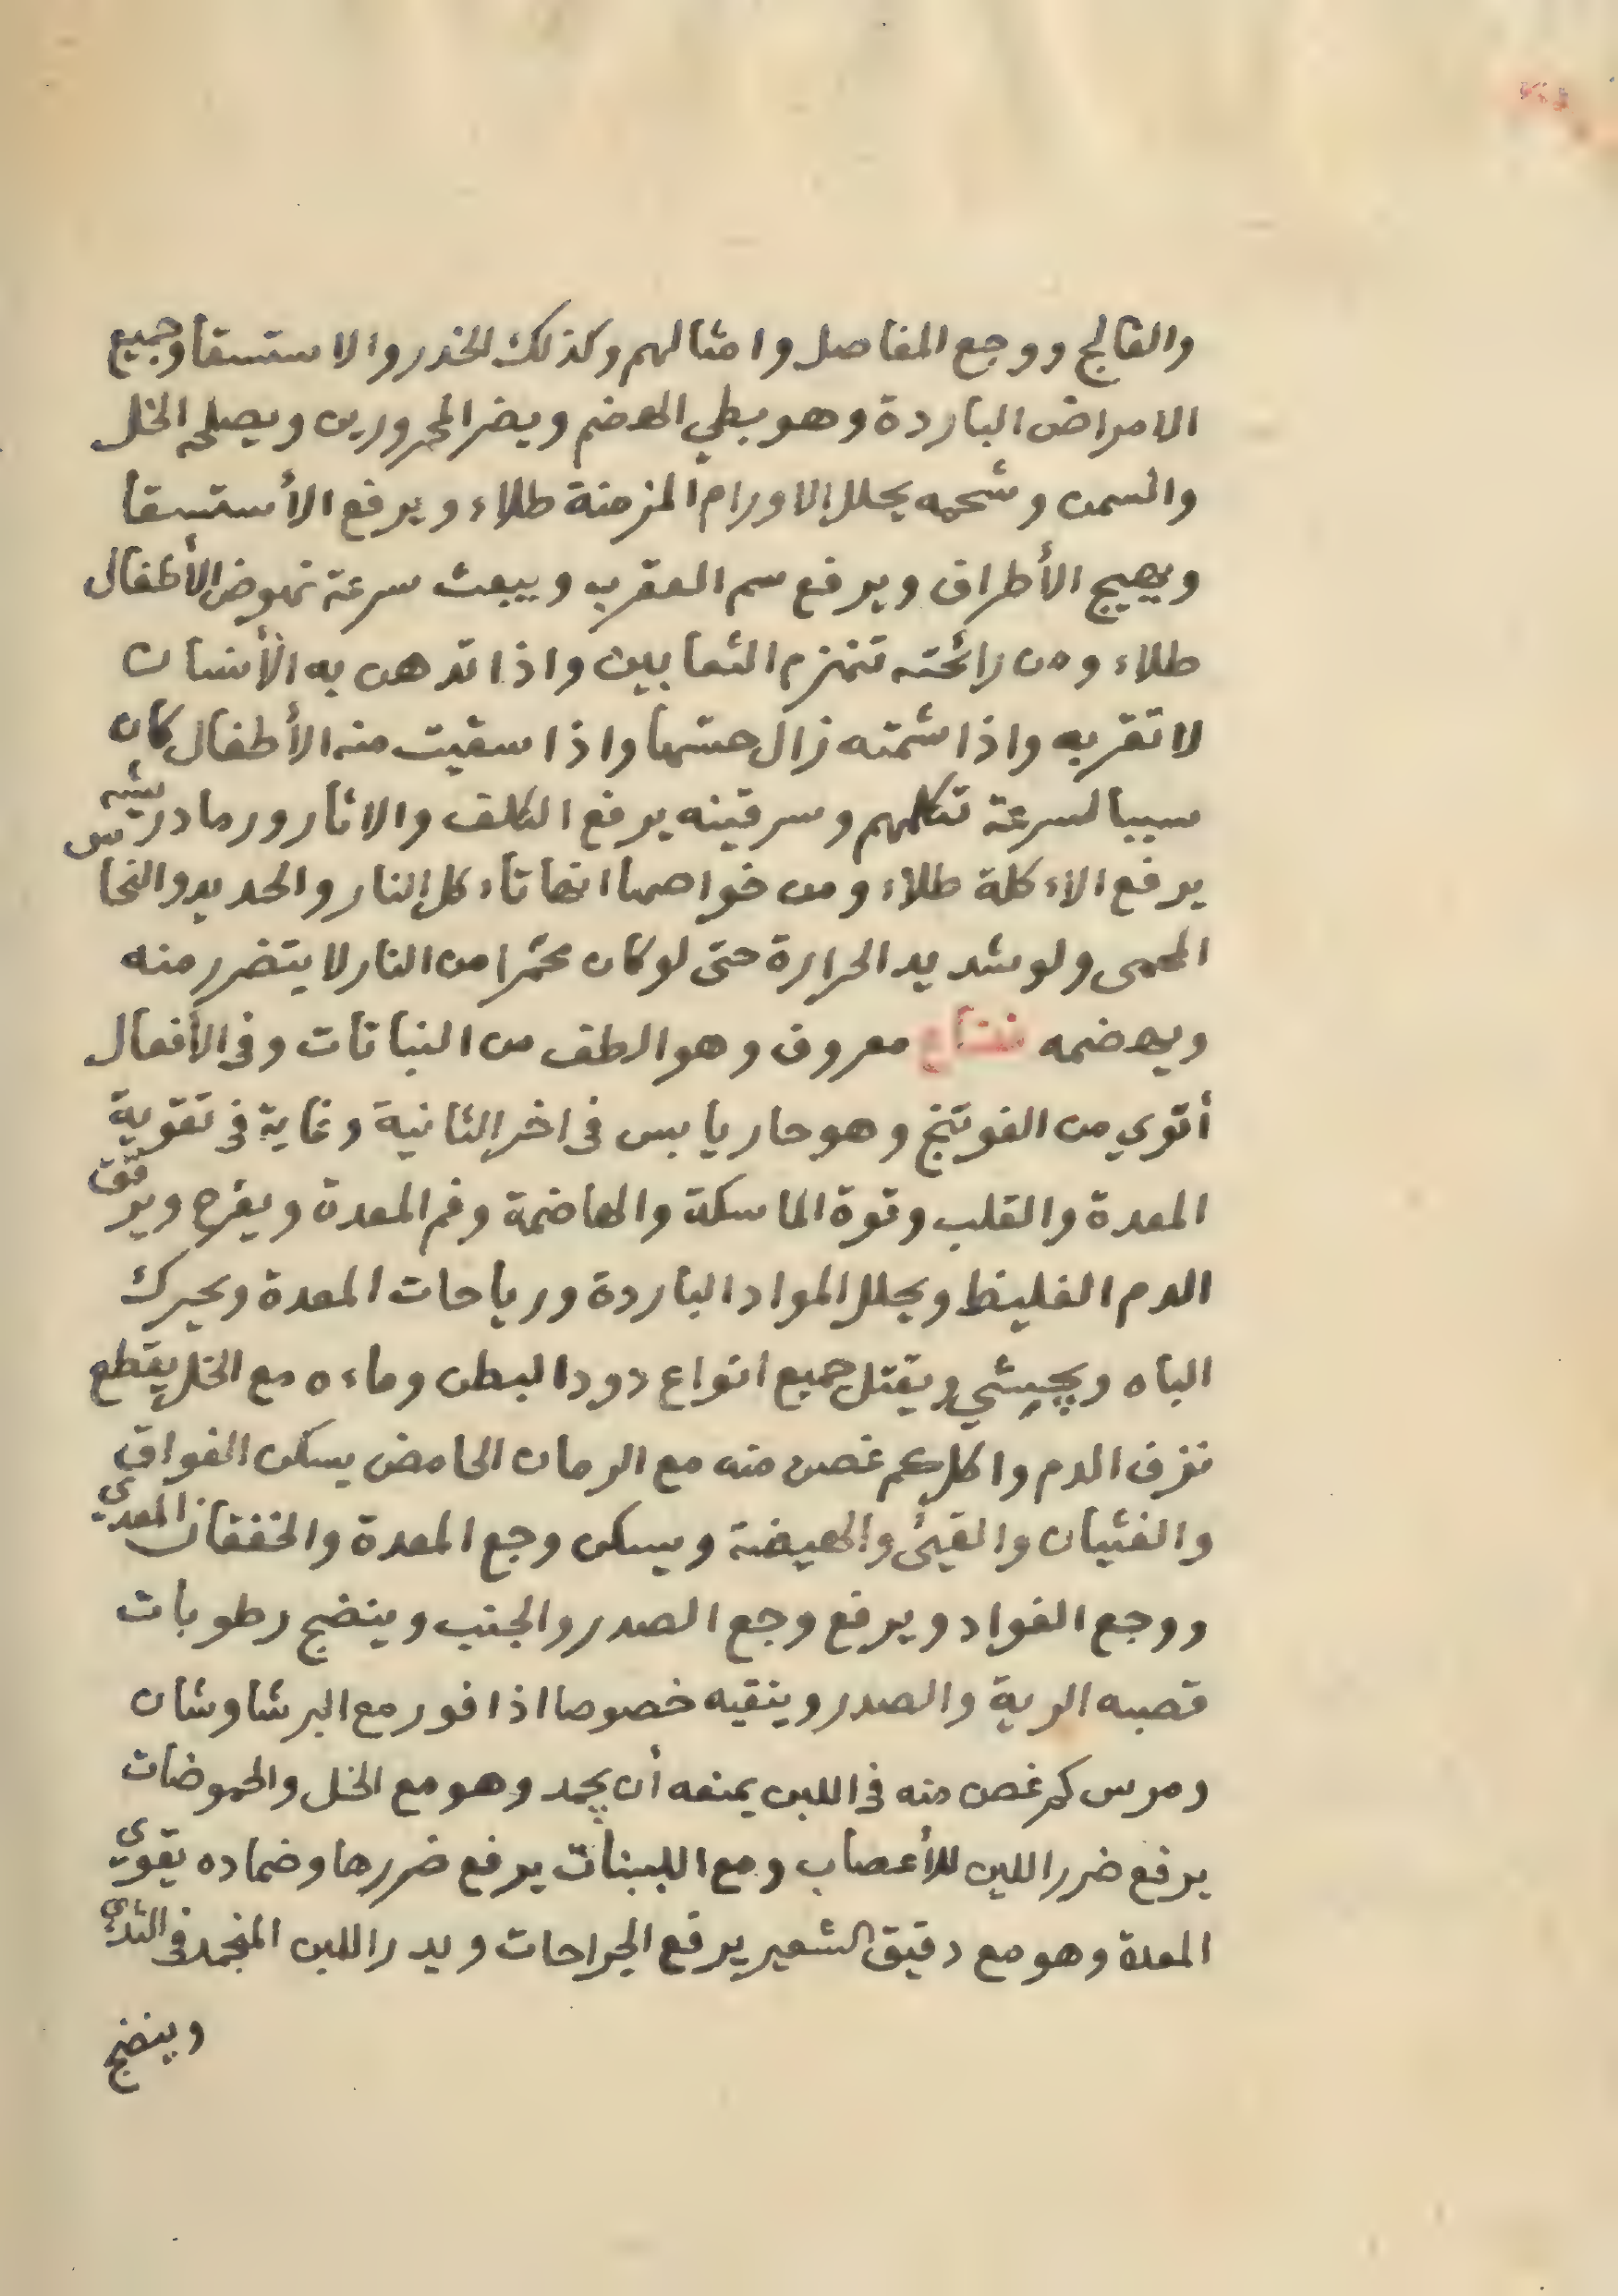 والفالج ووجع المفاصل وامثالهم وكذلك الخدر والاستسقا وجميع
الامراض الباردة وهو بطي الهضم ويضر المحرورين ويصلحه الخل
والسمن وشحمه يحلل الاورام المزمنة طلاء ويرفع الأستسقا
ويهيج الأطراف ويرفع سم العقرب ويبعث سرعة نهوض الأطفال
طلاء ومن رائحته تنهزم الثعابين واذا تدهن به الأنسان
لا تقربه واذا شمته زال حسها واذا سقيت منه الأطفال كان
سببا لسرعة تكلمهم وسرقينه يرفع الكلف والاثار ورماد ريشه
يرفع الاءكلة طلاء ومن خواصها انها تاءكل النار والحديد والنحاس
المحمى ولو شديد الحرارة حتى لو كان محمرا من النار لا يتضرر منه
ويهضمه نعناع معروف وهو الطف من النباتات وفى الأفعال
أقوي من الفوتنج وهو حار يابس فى اخر الثانية وغاية فى تقوية
المعدة والقلب وقوة الماسكة والهاضمة وفم المعدة ويفرح ويرقق
الدم الغليظ ويحلل المواد الباردة ورياحات المعدة ويحرك
الباه ويجشي ويقتل جميع انواع دود البطن وماءه مع الخل يقطع
نزف الدم واكل كم غصن منه مع الرمان الحامض يسكن الفواق
والغثيان والقيئ والهيضة ويسكن وجع المعدة والخفقان المعدي
ووجع الفواد ويرفع وجع الصدر والجنب وينضج رطوبات
قصبه الرية والصدر وينقيه خصوصا اذا فور مع البرشاوشان
ومرس كم غصن منه فى اللبن يمنعه أن يجمد وهو مع الخل والحموضات
يرفع ضرر اللبن للأعصاب ومع اللبنات يرفع ضررها وضماده يقوي
المعدة وهو مع دقيق الشعير يرفع الجراحات ويدر اللبن المنجمد فى الثدي
وينضج